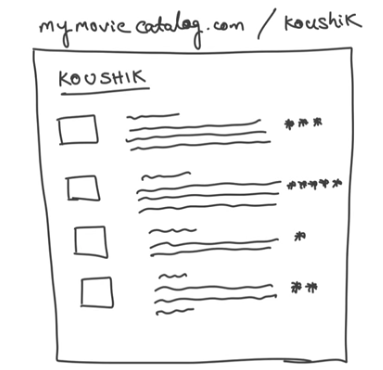 mymoviecatalog.com / koushik
KOUSHIK
***
*****
*
**